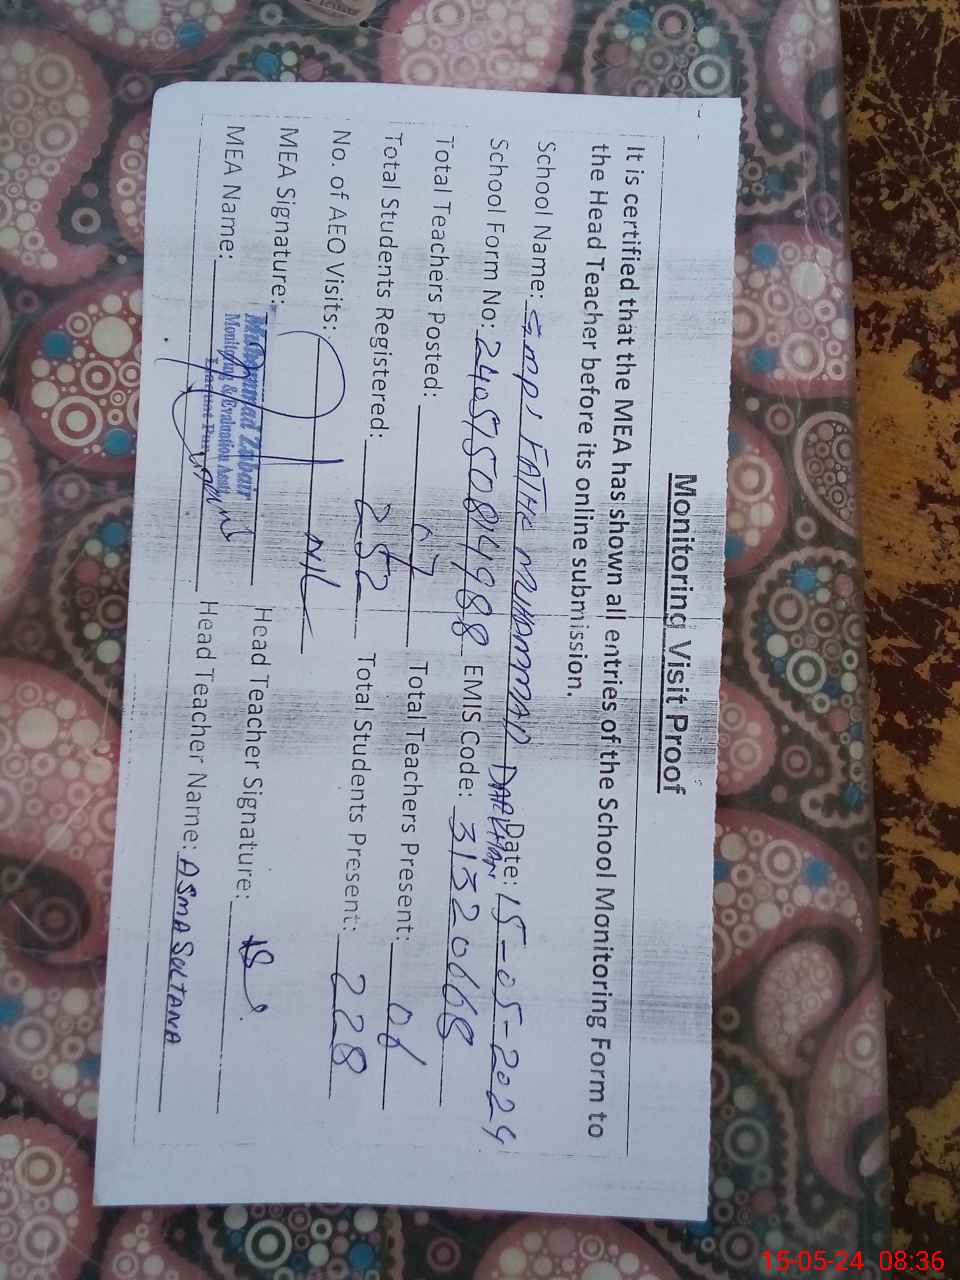 Monitoring Visit Proof
It is certified that the MEA has shown all entries of the School Monitoring Form to
the Head Teacher before its online submission.
School Name: GMPS FATHE MUHAMMAD DARKHAN Date: 15-05-2024
School Form No: 2405 EMIS Code: 31320668
Total Teachers Posted: 07 Total Teachers Present: 06
Total Students Registered: 252 Total Students Present: 228
No. of AEO Visits: NIL
MEA Signature: Head Teacher Signature:
Muhammad Zubair
MEA Name: Head Teacher Name: ASMA SULTANA
Monitoring & Evaluation Asstt
15-05-24 08:36